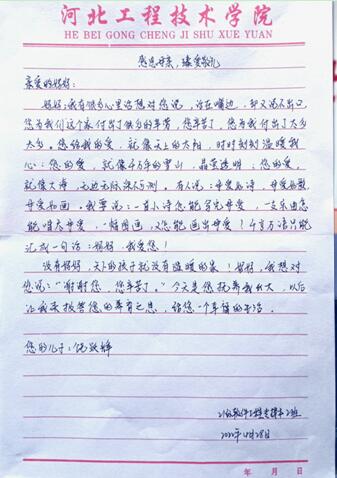 河北工程技术学院
HE BEI GONG CHENG JI SHU XUE YUAN
感恩母亲，
亲爱的妈妈：
妈妈！我有很多心里话想对您说，话在嘴边，却又说不出口，
您为我们这个家付出了很多的辛劳，您辛苦了，您为我付出了太多
太多。您给我的爱，就像天上的太阳，时时刻刻温暖我
心；您的爱，就像千万年的雪山，晶莹透明；您的爱，
就像大海，无边无际，深不可测。有人说：母爱如诗，母爱如歌，
母爱如画。我要说：一首小诗怎能写完母爱，一支乐曲怎
能唱尽母爱，一幅图画，又怎能画出母爱！千言万语只能
汇成一句话：妈妈，我爱您！
没有妈妈，天下的孩子就没有温暖的家！妈妈，我想对
您说："谢谢您，您辛苦了。"今天是您抚养我长大，以后
让我来报答您的养育之恩，给您一个幸福的生活。
您的儿子：
软件工程专接本二班
年 月 日